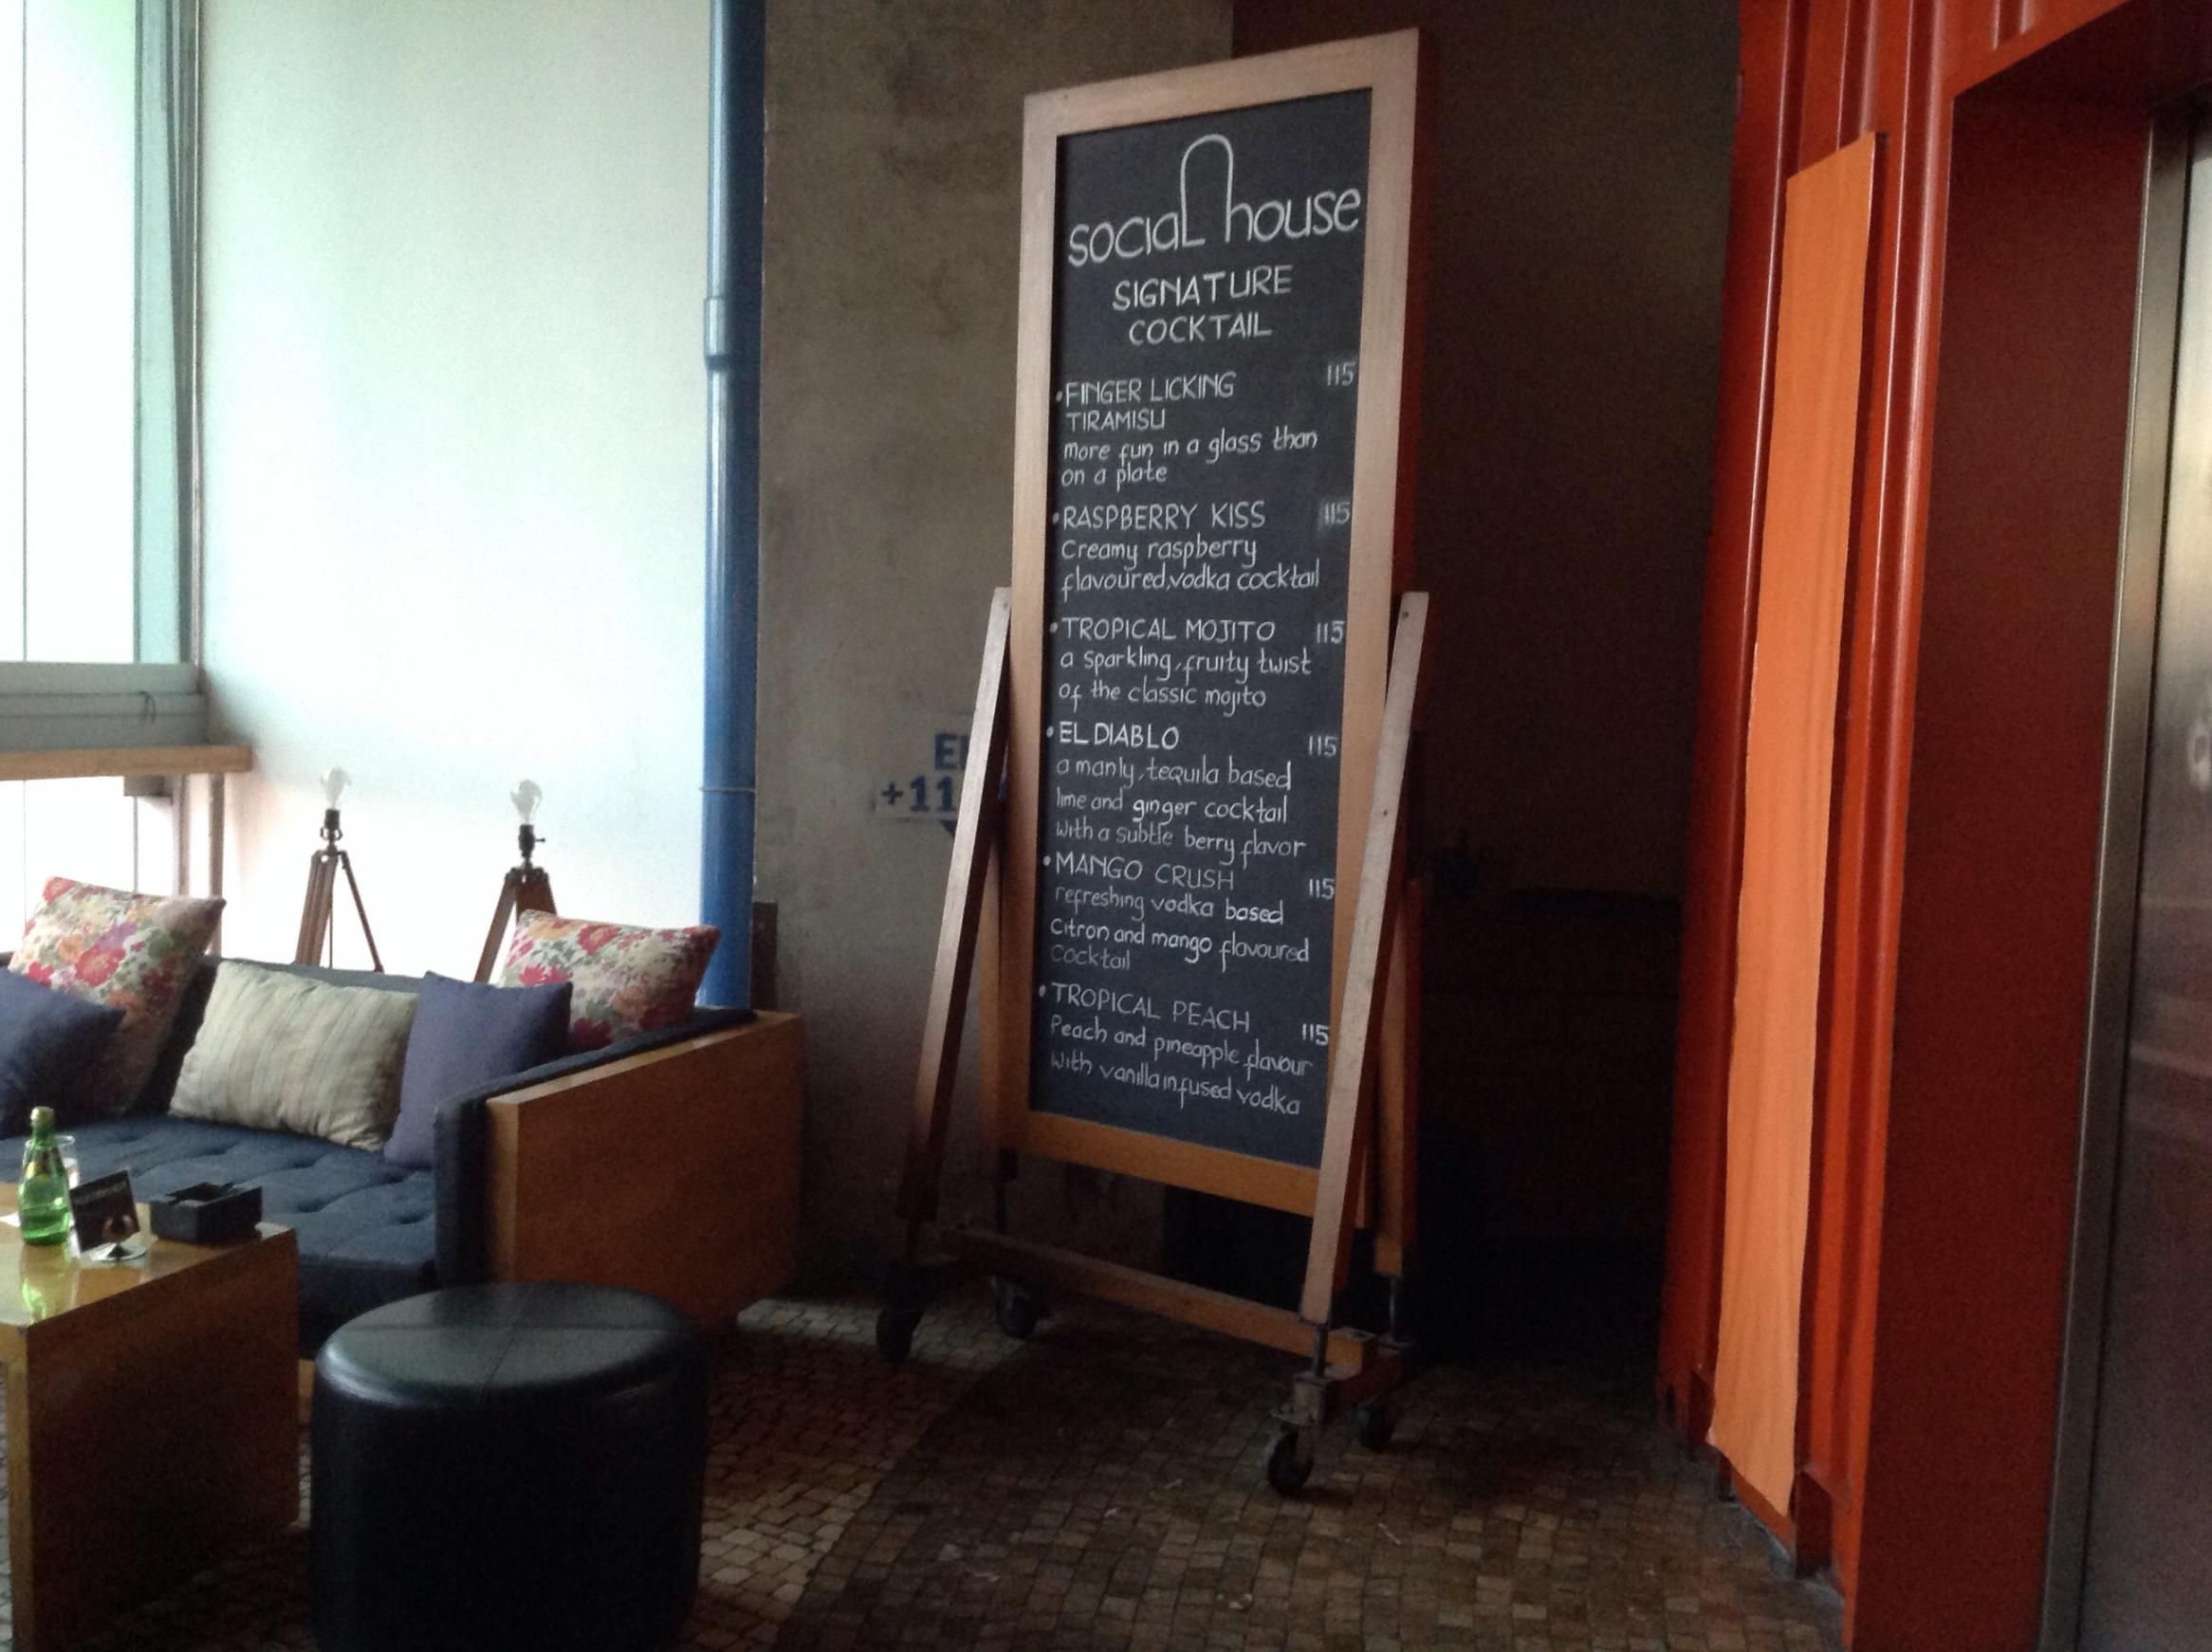 social house
SIGNATURE
COCKTAIL
• FINGER LICKING 115
TIRAMISU
more fun in a glass than
on a plate
• RASPBERRY KISS 115
Creamy raspberry
flavoured, vodka cocktail
• TROPICAL MOJITO 115
a sparkling, fruity twist
of the classic mojito
• EL DIABLO 115
a manly, tequila based
lime and ginger cocktail
with a subtle berry flavor
• MANGO CRUSH 115
refreshing vodka based
Citron and mango flavoured
Cocktail
• TROPICAL PEACH 115
Peach and pineapple flavour
with vanilla infused vodka
+11